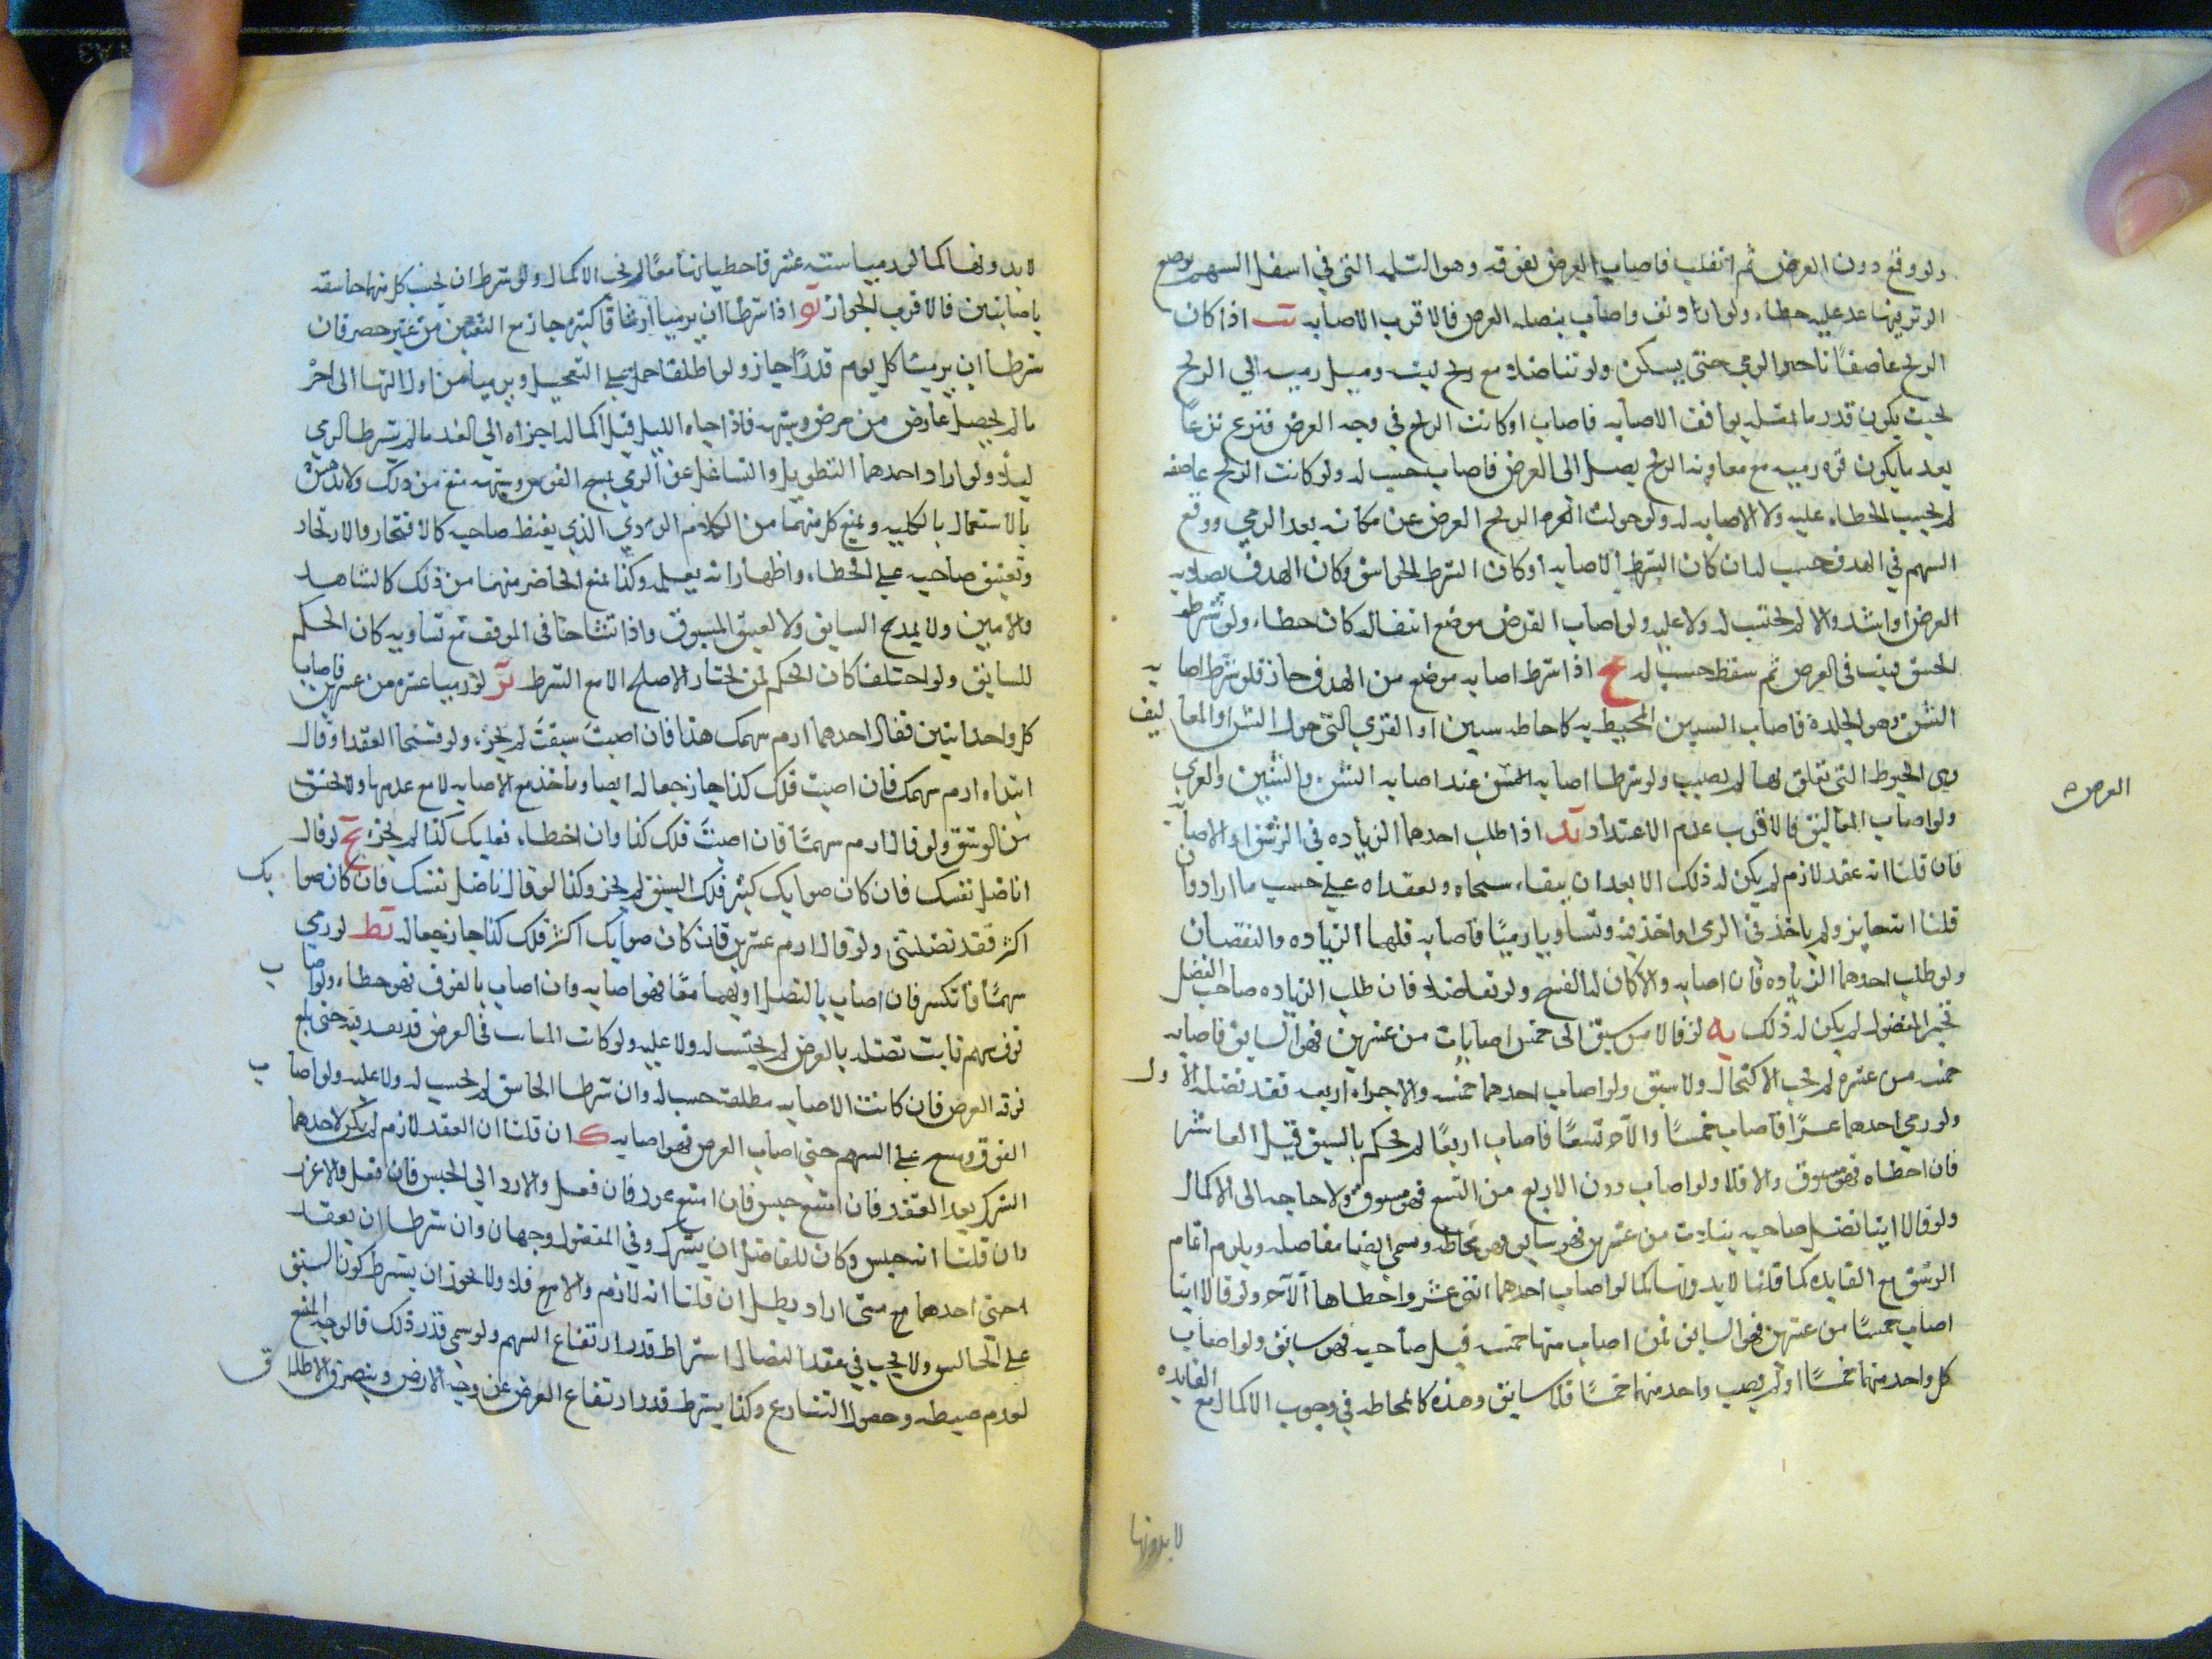 ولو وقع دون الغرض ثم انقلب فاصاب الغرض بفوقه وهو الثلمة التي في اسفل السهم يوضع
الوتر فيها عد عليه خطاء ولو ازدلف واصاب بنصله الغرض فالاقرب الاصابة يب اذا كان
الريح عاصفا تاخر الرمي حتى يسكن ولو تناضلا مع ريح لينة وميل رميه الي الريح
بحيث يكون قدر ما تميله يوافق الاصابه فاصاب او كانت الريح في وجه الغرض فنزع نزعًا
بعد ما يكون قوة رميه مع معاونه الريح يصل الى الغرض فاصاب حسب له ولو كانت الريح عاصفه
لم يحسب الخطاء عليه ولا الاصابه له ولو حولت الريح الغرض عن مكانه بعد الرمي ووقع
السهم في الهدف حسب له ان كان الشرط الاصابه او كان الشرط الخواسق وكان الهدف بصلابه
الغرض او اشد والا لم يحتسب له ولا عليه ولو اصاب الغرض موضع انتقاله كان خطاء ولو شرط
الخسق فثبت في الغرض ثم سقط حسب له يج اذا شرط اصابه موضع من الهدف جاز فلو شرط اصابه
الشن وهو الجلدة فاصاب السيرين المحيط به كاحاطه سيرين او العري التي حول الشن او المعاليق
وهي الخيوط التي تعلق بها لم يصب ولو شرطا اصابه الغرض عند اصابه الشن والسيرين والعري
ولو اصاب المعاليق فالاقرب عدم الاعتداد يد اذا طلب احدهما الزياده في الرشق او الاصابه
فان قلنا انه عقد لازم لم يكن له ذلك الا بعد ان يتفاسخاه ويعقداه علي حسب ما ارادا وان
قلنا انه جايز ولم ياخذ في الرمي او اخذ فيه وتساويا رميًا واصابه فلهما الزياده والنقصان
ولو طلب احدهما الزياده فان اصابه والا كان له الفسخ ولو تفاضلا فان طلب الزياده صاحب الفضل
تخير المفضول لم يكن له ذلك يه لو قالا من سبق الى خمس اصابات من عشرين فهو السابق فاصابه
خمسه من عشره لم يجب الاكمال ولا سبق ولو اصاب احدهما خمسه والاخر اربعه فقد نضله الاول
ولو رمي احدهما عشرًا فاصاب خمسًا والاخر تسعًا فاصاب اربعًا لم يحكم بالسبق قبل العاشر
فان اخطاه فهو مسبوق والا فلا ولو اصاب دون الاربع من التسع فهو مسبوق ولا حاجه الى الاكمال
ولو قالا اينا نضل صاحبه بثلاث من عشرين فهو سابق وهو محاطه وسمي ايضا مفاضله ويلزم اتمام
الرشق مع الفايده كما قلنا لا بدونها كما لو اصاب احدهما اثني عشر واخطاها الاخر ولو قالا اينا
اصاب خمسًا من عشرين فهو السابق فمن اصاب منها خمسه قبل صاحبه فهو سابق ولو اصاب
كل واحد منهما خمسًا او لم يصب واحد منهما خمسًا فلا سابق وهذه كالمحاطه في وجوب الاكمال مع الفايده
لا بدونها
الغرض
لا بدونها كما لو رميا سته عشر فاخطياها معًا لم يجب الاكمال ولو شرط ان يحسب كل منهما خاسقه
باصابتين فالاقرب الجواز يو اذا شرطا ان يرميا ارشاقا كثيره جاز مع التعيين من غير حصر فان
شرطا ان يرميا كل يوم قدرًا جاز ولو اطلقا حمل علي التعجيل ويرميا من اول النهار الى اخره
ما لم يحصل عارض من مرض وشبهه فاذا جاء الليل قبل اكماله اجزاه الي الغد ما لم يشرط الرمي
ليلاً ولو اراد احدهما التطويل والتشاغل عن الرمي بمسح القوس وشبهه منع من ذلك ولا يدهش
بالاستعمال بالكليه ويمنع كل منهما من الكلام الردي الذي يغيظ صاحبه كالافتخار والارتجاز
وتعنيف صاحبه علي الخطاء واظهار انه يعلمه وكذا يمنع الحاضر منهما من ذلك كالشاهد
والامين ولا يمدح السابق ولا يعيب المسبوق واذا تشاحا في الموقف مع تساويه كان الحكم
للسابق ولو اختلفا كان الحكم لمن يختار الاصلح الا مع الشرط يز لو رميا عشره من عشرين فاصاب
كل واحد اثنين فقال احدهما ارم سهمك هذا فان اصبتَ سبقتَ لم يجز ولو فسخا العقد او قال
ابتداء ارم سهمك فان اصبت فلك كذا جاز جعاله ايضا وياخذ مع الاصابه لا مع عدمها ولا يحتسب
من الرشق ولو قال ارم سهمًا فان اصبتَ فلك كذا وان اخطاء فعليك كذا لم يجز يح لو قال
اناضل نفسك فان كان صوابك كثير فلك السبق لم يجز وكذا لو قال ناضل نفسك فان كان صوابك
اكثر فقد نضلتني ولو قال ارم عشرين فان كان صوابك اكثر فلك كذا جاز جعاله يط لو رمي
سهمًا فانكسر فان اصاب بالنصل او بهما معًا فهو اصابه وان اصاب بالفوق فهو خطاء ولو اصاب
فوق سهم ثابت نصله بالغرض لم يحتسب له ولا عليه ولو كان الثابت في الغرض قد بعد فيه حتى بلغ
فوقه الغرض فان كانت الاصابه مطلقة حسب له وان شرطا الخاسق لم يحسب له ولا عليه ولو اصاب
الفوق وسبح علي السهم حتى اصاب الغرض فهو اصابه ك ان قلنا ان العقد لازم لم يكن لاحدهما
الترك بعد العقد فان امتنع حبس فان امتنع عزر فان فعل والا رد الي الحبس فان فعل والا عزر
وان قلنا انه حبس وكان للفاضل ان يترك وفي المفضول وجهان وان شرطا ان يعقد
احتى احدهما مع متى اراد ويطل ان قلنا انه لازم والا صح فلا ولا يجوز ان يشترط كون السبق
علي الجالس ولا يجب في عقد النضال اشتراط قدر ارتفاع السهم ولو سمي قدر ذلك فالوجه المنع
لعدم ضبطه وحصول التنازع وكذا يشترط قدر ارتفاع الغرض عن وجه الارض وينصرف الاطلاق